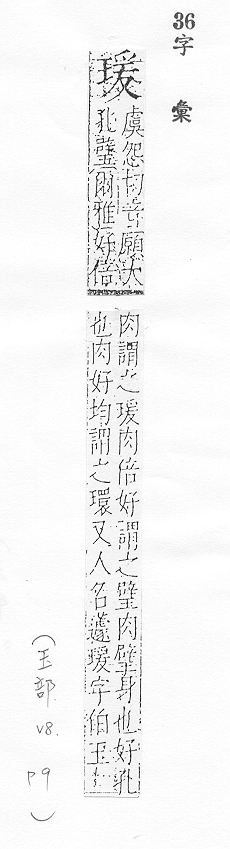 36字 彙
瑗
虞怨切音願大
孔璧爾雅好倍
肉謂之瑗肉倍好謂之璧肉璧身也好孔
也肉好均謂之環又人名蘧瑗字伯玉
(玉部 v8. p9)